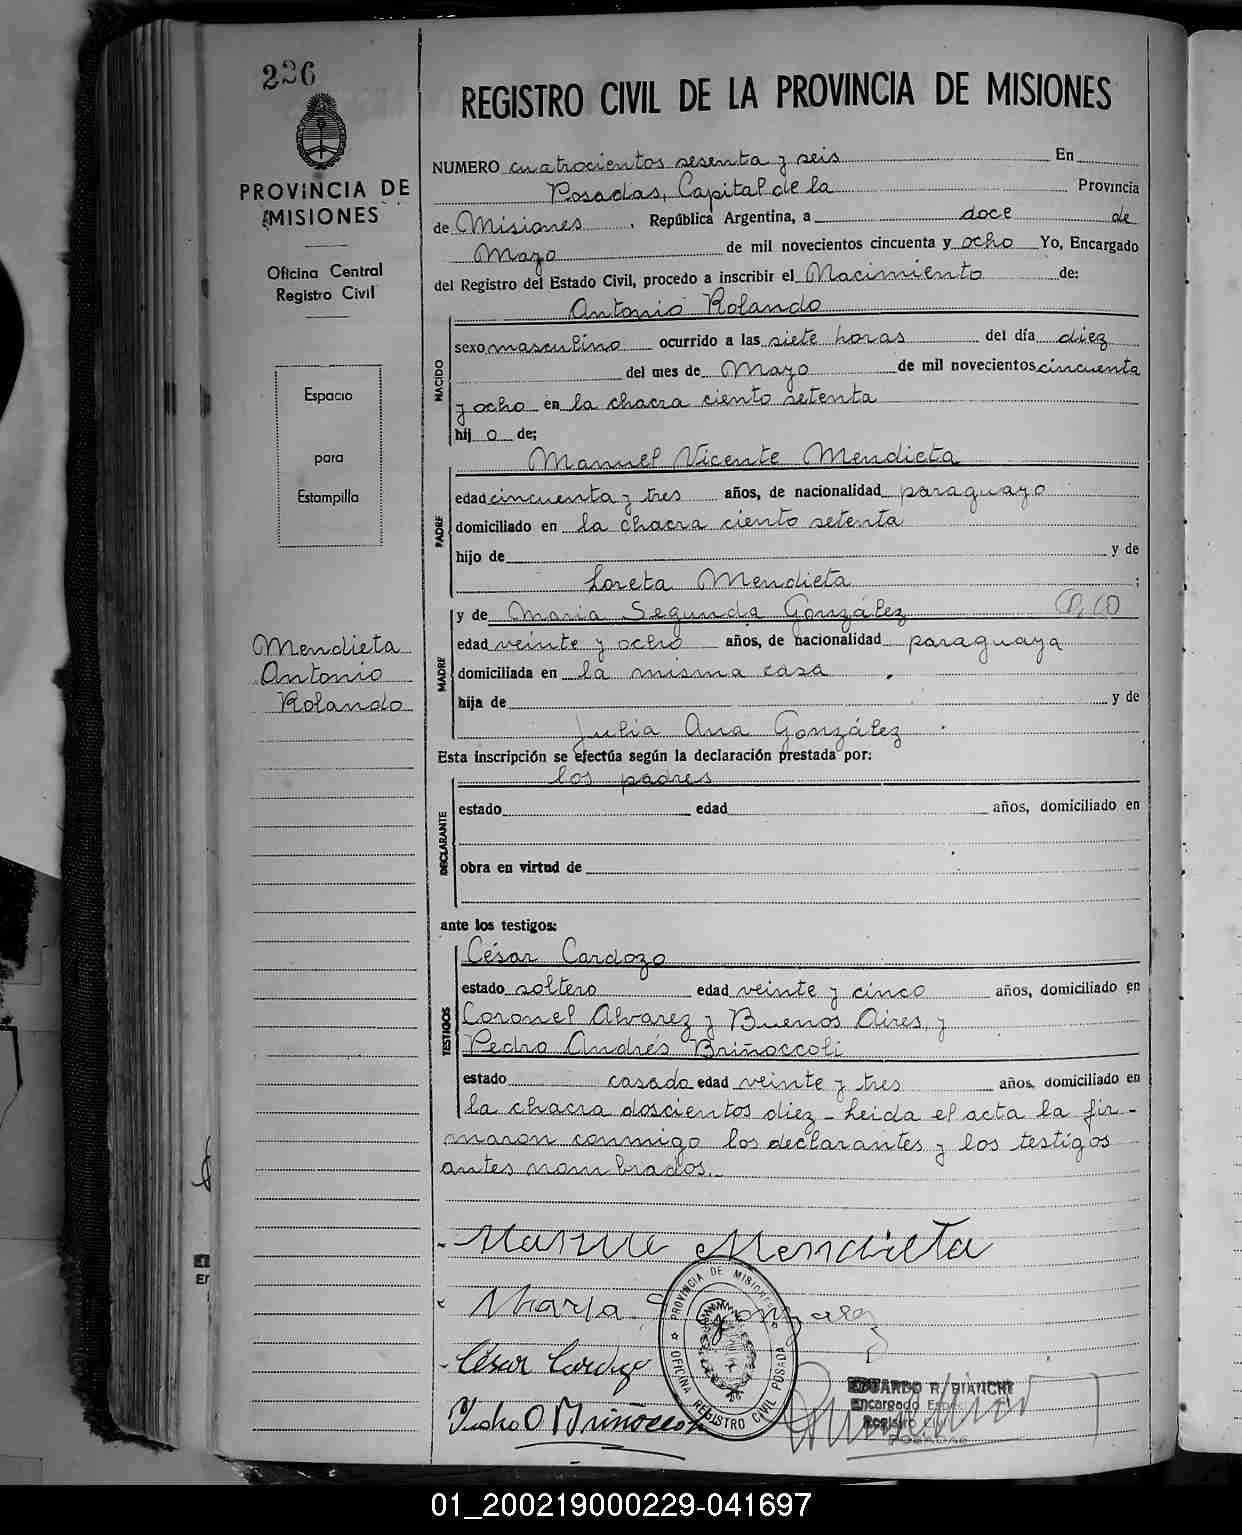 226
PROVINCIA DE
MISIONES
Oficina Central
Registro Civil
Espacio
para
Estampilla
Mendieta
Antonio
Rolando
REGISTRO CIVIL DE LA PROVINCIA DE MISIONES
NUMERO cuatrocientos sesenta y seis En
Posadas, Capital de la Provincia
de Misiones, República Argentina, a doce de
Mayo de mil novecientos cincuenta y ocho Yo, Encargado
del Registro del Estado Civil, procedo a inscribir el Nacimiento de:
Antonio Rolando
NACIDO
sexo masculino ocurrido a las siete horas del día diez
del mes de Mayo de mil novecientos cincuenta
y ocho en la chacra ciento setenta
hij o de;
PADRE
Manuel Vicente Mendieta
edad cincuenta y tres años, de nacionalidad paraguayo
domiciliado en la chacra ciento setenta
hijo de y de
Loreta Mendieta;
MADRE
y de Maria Segunda González
edad veinte y ocho años, de nacionalidad paraguaya
domiciliada en la misma casa
hija de y de
Julia Ana González
Esta inscripción se efectúa según la declaración prestada por:
los padres
DECLARANTE
estado edad años, domiciliado en
obra en virtud de
ante los testigos:
TESTIGOS
César Cardozo
estado soltero edad veinte y cinco años, domiciliado en
Coronel Alvarez y Buenos Aires, y
Pedro Andrés Briñoccoli
estado casado edad veinte y tres años, domiciliado en
la chacra doscientos diez - Leida el acta la fir-
maron conmigo los declarantes y los testigos
antes nombrados.
Manuel Mendieta
Maria S Gonzalez
César Cardozo
Pedro A Briñoccoli
PROVINCIA DE MISIONES
OFICINA REGISTRO CIVIL POSADAS
EDUARDO R. BIANCHI
Encargado
Registro Civil
POSADAS
01_200219000229-041697